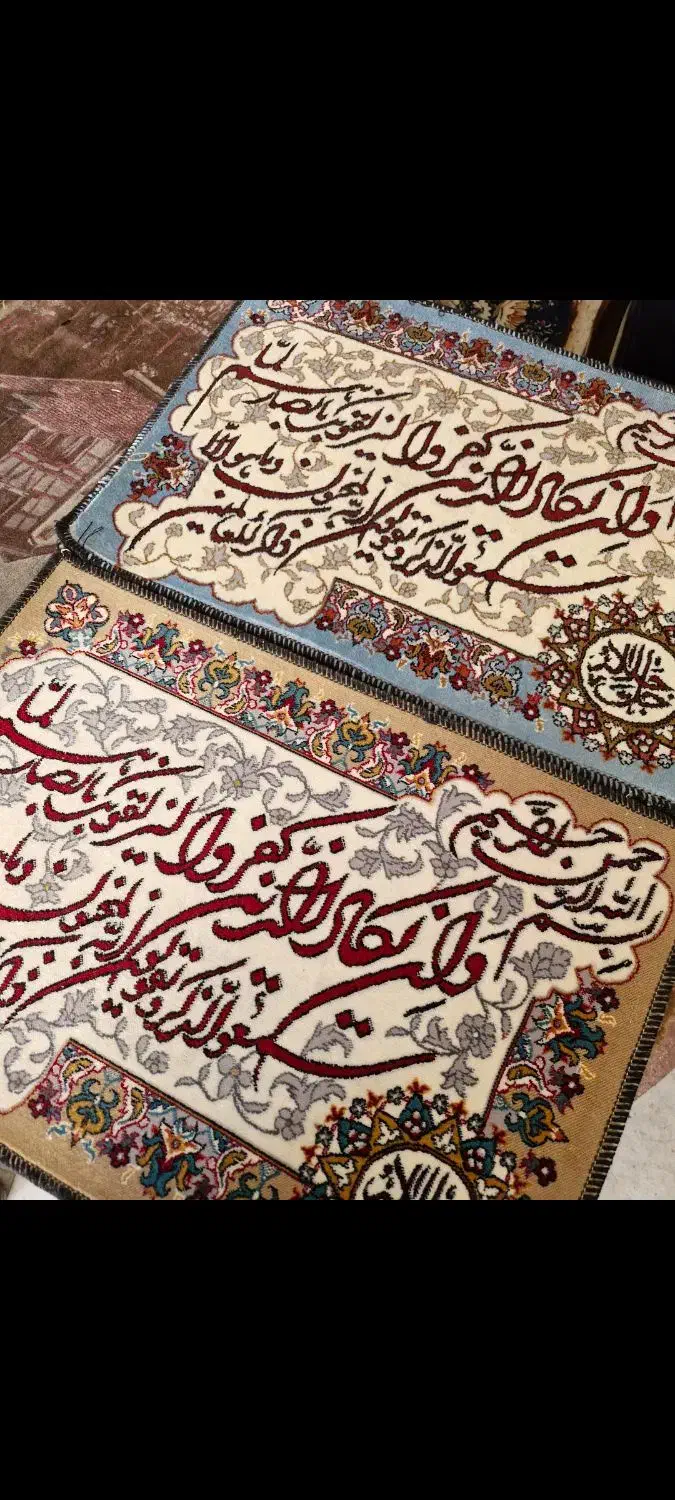 وان یکاد الذین کفروا لیزلقونک بابصارهم لما
سمعوا الذکر و یقولون انه لمجنون وما هو الا
ذکر للعالمین
بسم الله الرحمن الرحیم
وان یکاد الذین کفروا لیزلقونک بابصارهم لما
سمعوا الذکر و یقولون انه لمجنون وما